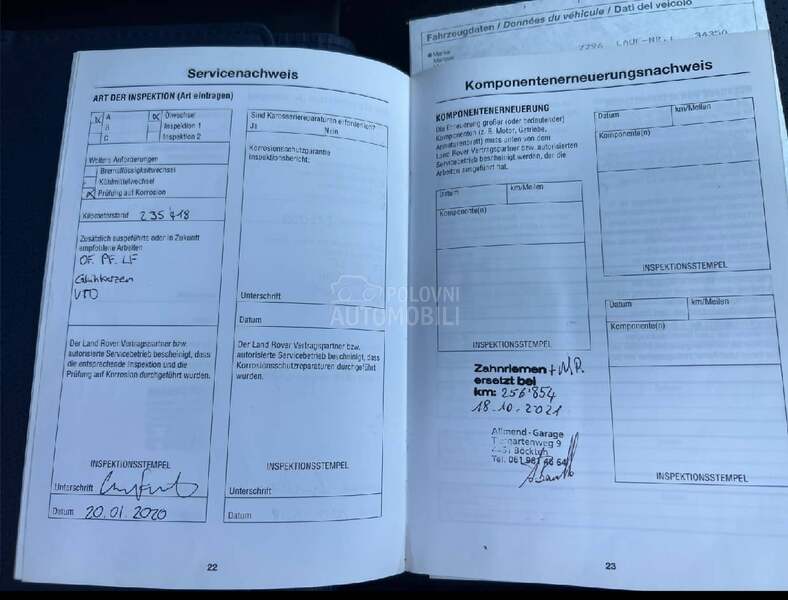 Fahrzeugdaten / Données du véhicule / Dati del veicolo
Marke
34350
Servicenachweis
ART DER INSPEKTION (Art eintragen)
A
B
C
Ölwechsel
Inspektion 1
Inspektion 2
Weitere Anforderungen
Bremsflüssigkeitswechsel
Kühlmittelwechsel
Prüfung auf Korrosion
Kilometerstand 235'418
Zusätzlich ausgeführte oder in Zukunft
empfohlene Arbeiten
OF. PF. LF
Glühkerzen
Der Land Rover Vertragspartner bzw.
autorisierte Servicebetrieb bescheinigt, dass
die entsprechende Inspektion und die
Prüfung auf Korrosion durchgeführt wurden.
INSPEKTIONSSTEMPEL
Unterschrift
Datum 20.01.2020
Sind Karosseriereparaturen erforderlich?
Ja Nein
Korrosionsschutzgarantie
Inspektionsbericht:
Unterschrift
Datum
Der Land Rover Vertragspartner bzw.
autorisierte Servicebetrieb bescheinigt, dass
Korrosionsschutzreparaturen durchgeführt
wurden.
INSPEKTIONSSTEMPEL
Unterschrift
Datum
22
POLOVNI
AUTOMOBILI
Komponentenerneuerungsnachweis
KOMPONENTENERNEUERUNG
Die Erneuerung großer (oder bedeutender)
Komponenten (z. B. Motor, Getriebe,
Armaturenbrett) muss unten von dem
Land Rover Vertragspartner bzw. autorisierten
Servicebetrieb bescheinigt werden, der die
Arbeiten ausgeführt hat.
Datum km/Meilen
Komponente(n)
INSPEKTIONSSTEMPEL
Zahnriemen + W.P.
ersetzt bei
km: 256'854
18.10.2021
Allmend-Garage
Tiergartenweg 9
Böckten
Tel. 061 981 66 64
Datum km/Meilen
Komponente(n)
INSPEKTIONSSTEMPEL
Datum km/Meilen
Komponente(n)
INSPEKTIONSSTEMPEL
23